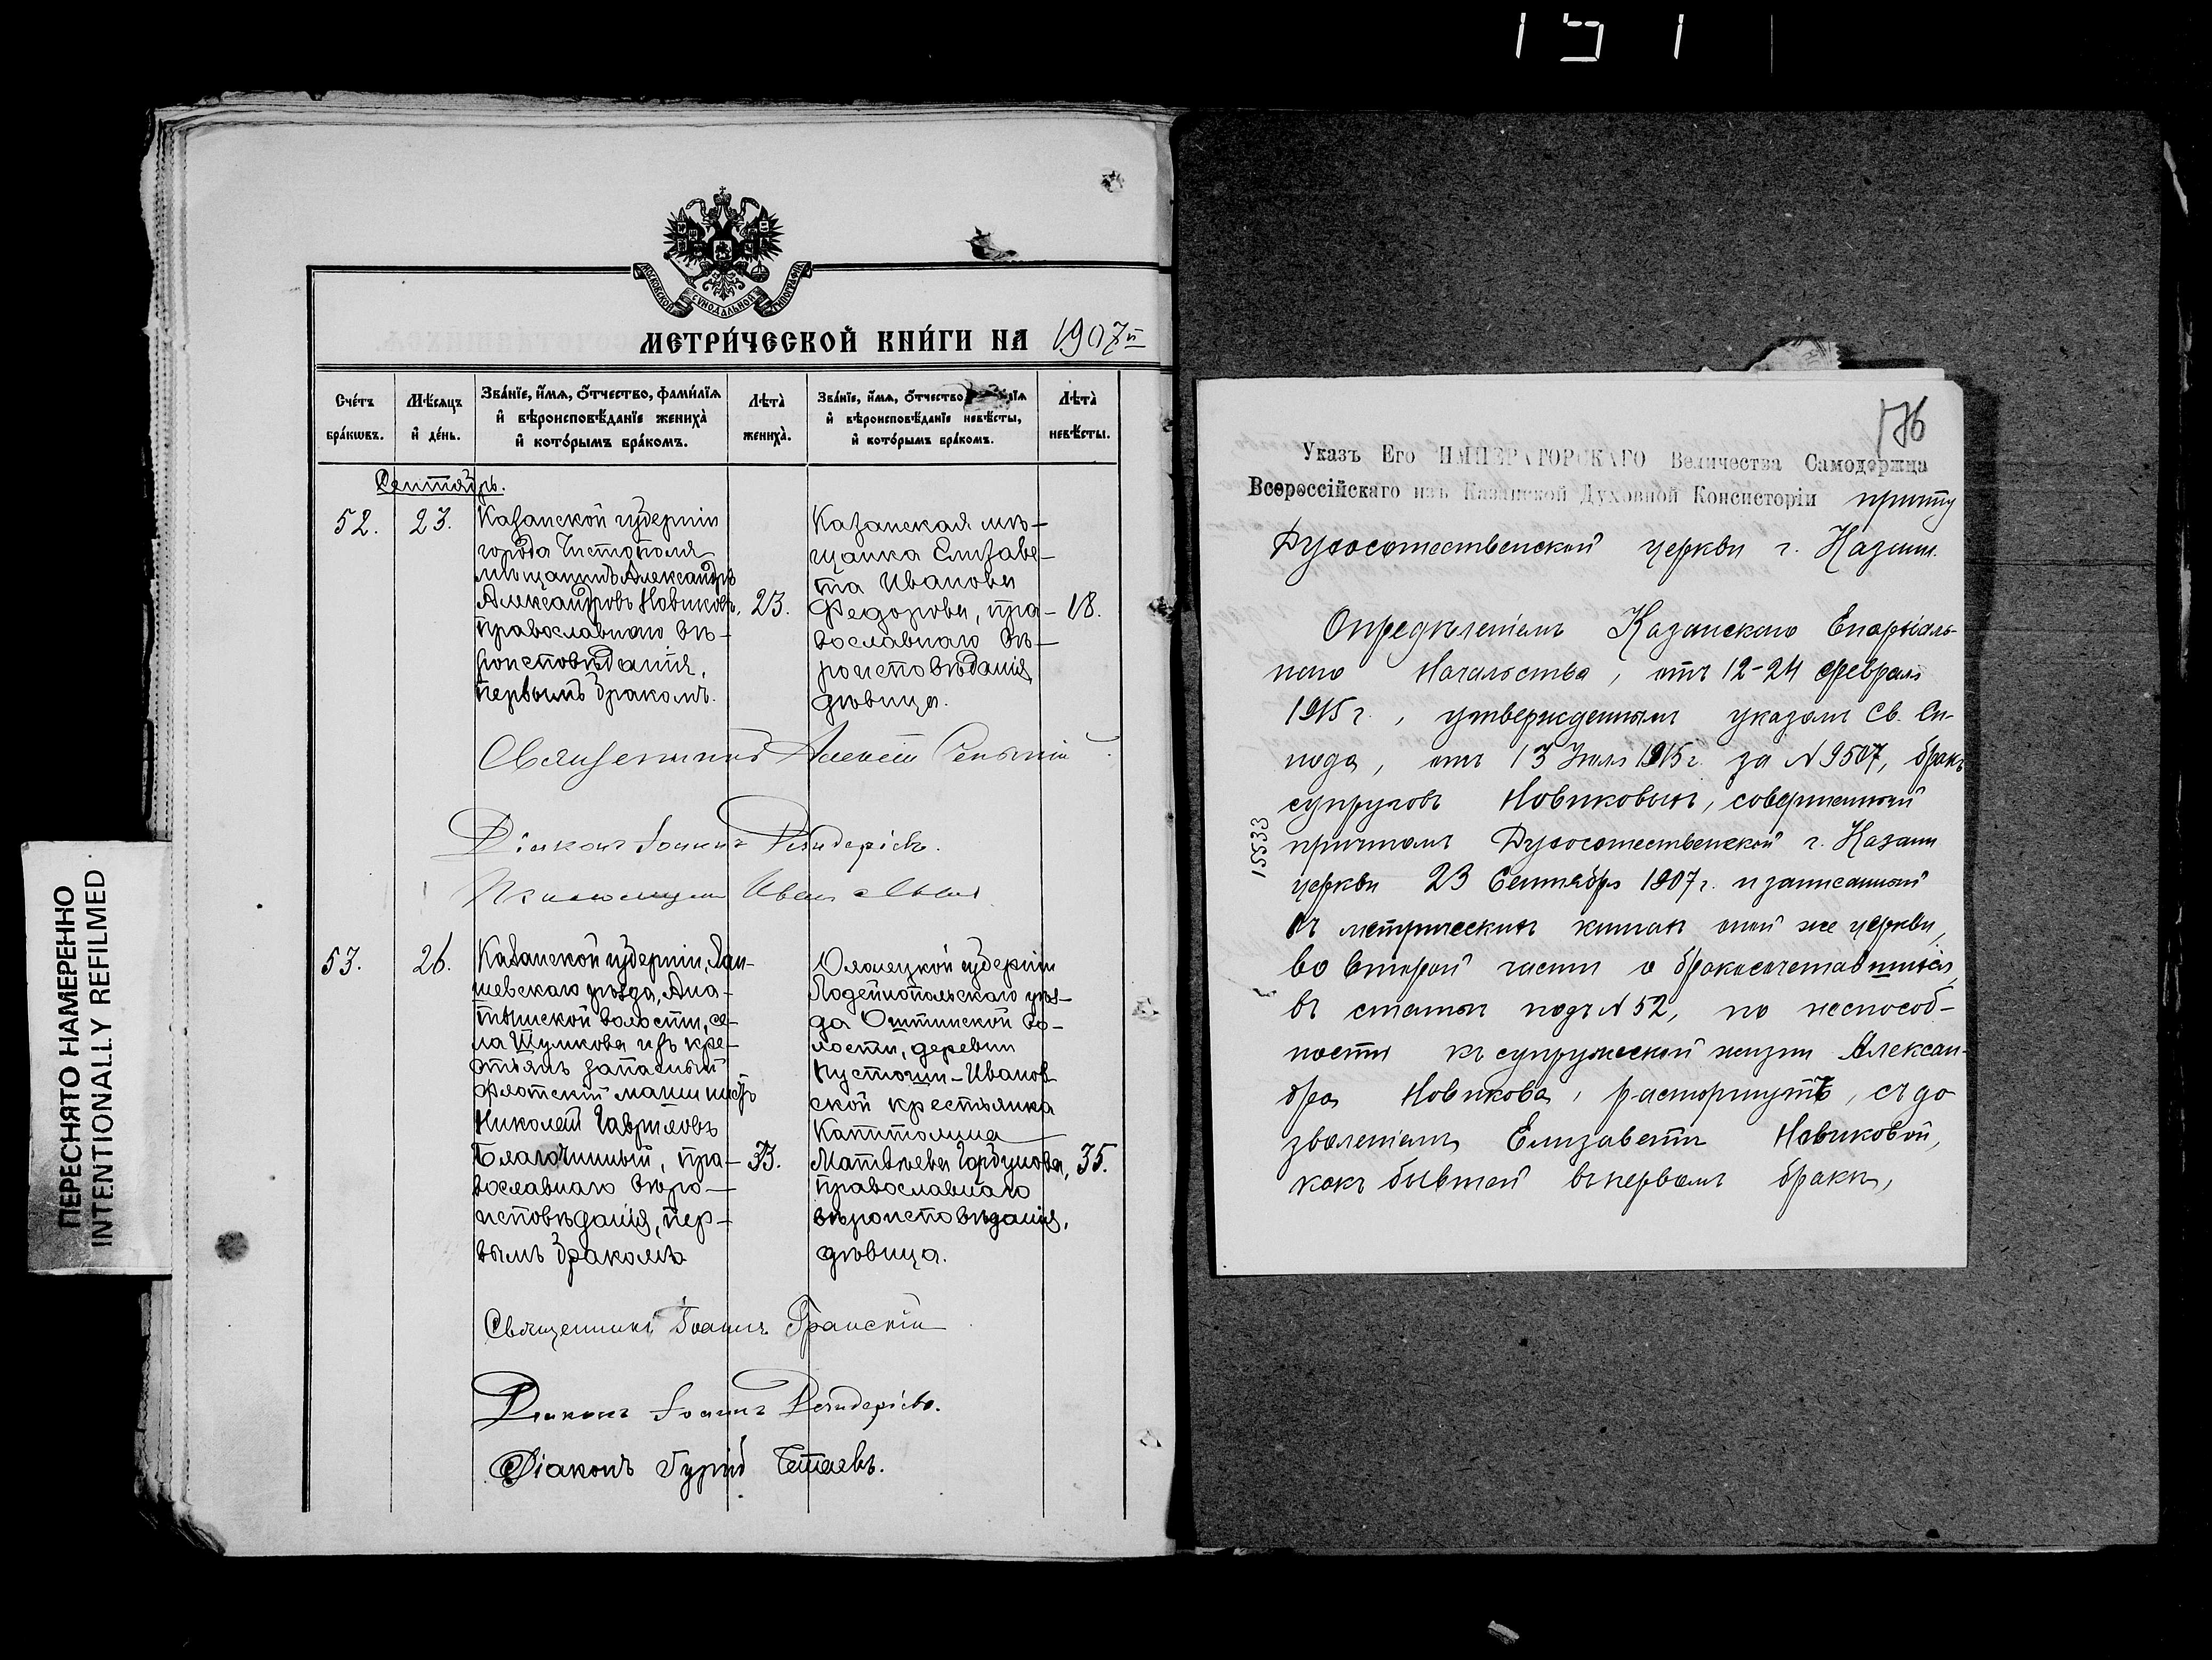 151
МОСКОВСКОЙ СУНОДАЛЬНОЙ ТИПОГРАФІИ
МЕТРИ́ЧЕСКОЙ КНИ́ГИ НА 1907й
Сче́тъ бра́кѡвъ.
Мѣ́сѧцъ и҆ де́нь.
Зва́нїе, и҆́мѧ, ѻ҆́тчество, фами́лїѧ
и҆ вѣроисповѣ́данїе жениха̀
и҆ кото́рымъ бра́комъ.
Лѣта̀ жениха̀.
Зва́нїе, и҆́мѧ, ѻ҆́тчество
и҆ вѣроисповѣ́данїе невѣ́сты,
и҆ кото́рымъ бра́комъ.
Лѣта̀ невѣ́сты.
Сентябрь.
52. 23.
Казанской губерніи
города Чистополя
мѣщанинъ Александръ
Александровъ Новиковъ,
православнаго вѣ-
роисповѣданія,
первымъ бракомъ.
23.
Казанская мѣ-
щанка Елизаве-
та Иванова
Федорова, пра-
вославнаго вѣ-
роисповѣданія,
дѣвица.
18.
Священникъ Алексѣй
Діаконъ Іоаннъ
Псаломщикъ Иванъ
53. 26.
Казанской губерніи, Лаи-
шевскаго уѣзда, Ана-
тышской волости, се-
ла Шумкова изъ кре-
стьянъ запасный
флотскій машинистъ
Николай Гавриловъ
Благочинный, пра-
вославнаго вѣро-
исповѣданія, пер-
вымъ бракомъ
33.
Олонецкой губерніи
Лодейнопольскаго уѣз-
да Оштинской во-
лости, деревни
Пустоши-Иванов
ской крестьянка
Капитолина
Матвѣева Горбунова,
православнаго
вѣроисповѣданія,
дѣвица.
35.
Священникъ Іоаннъ Гранскій
Діаконъ Іоаннъ
Діаконъ Гурій Бетаевъ.
ПЕРЕСНЯТО НАМЕРЕННО
INTENTIONALLY REFILMED
176
Указъ Его ИМПЕРАТОРСКАГО Величества Самодержца
Всероссійскаго изъ Казанской Духовной Консисторіи причту
Духосошественской церкви г. Казани.
Опредѣленіемъ Казанскаго Епархіаль-
наго Начальства, отъ 12-24 февраля
1915 г., утвержденнымъ указомъ Св. Си-
нода, отъ 13 Іюля 1915 г. за N 9507, бракъ
супруговъ Новиковыхъ, совершенный
причтомъ Духосошественской г. Казани
церкви 23 Сентября 1907 г. и записанный
въ метрическихъ книгахъ оной же церкви,
во второй части о бракосочетавшихся,
въ статьѣ подъ N 52, по неспособ-
ности къ супружеской жизни Алексан-
дра Новикова, расторгнутъ, съ до
зволеніемъ Елизаветѣ Новиковой,
какъ бывшей въ первомъ бракѣ,
15533